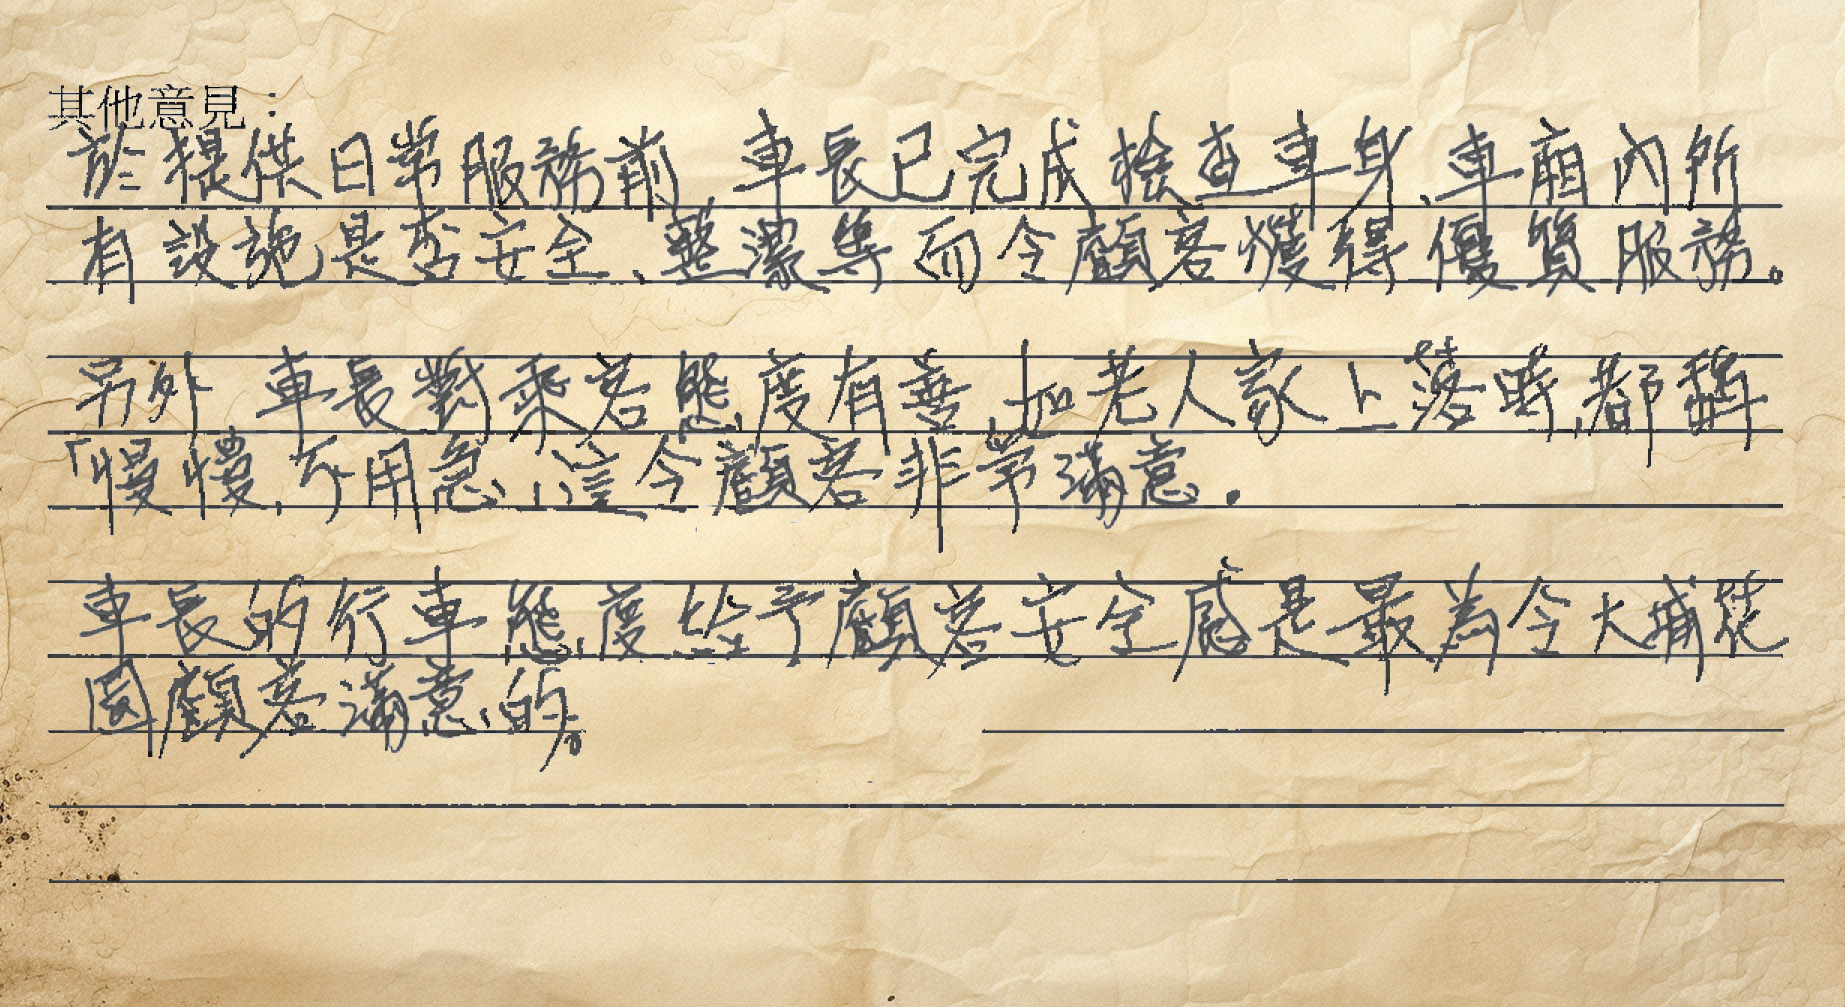 其他意見：
於提供日常服務前，車長已完成檢查車身、車廂內所
有設施是否安全、整潔等而令顧客獲得優質服務。
另外 車長對乘客態度有善，如老人家上落時，都稱
「慢慢，不用急」，這令顧客非常滿意。
車長的行車態度給予顧客安全感是最為令大埔花
園顧客滿意的。